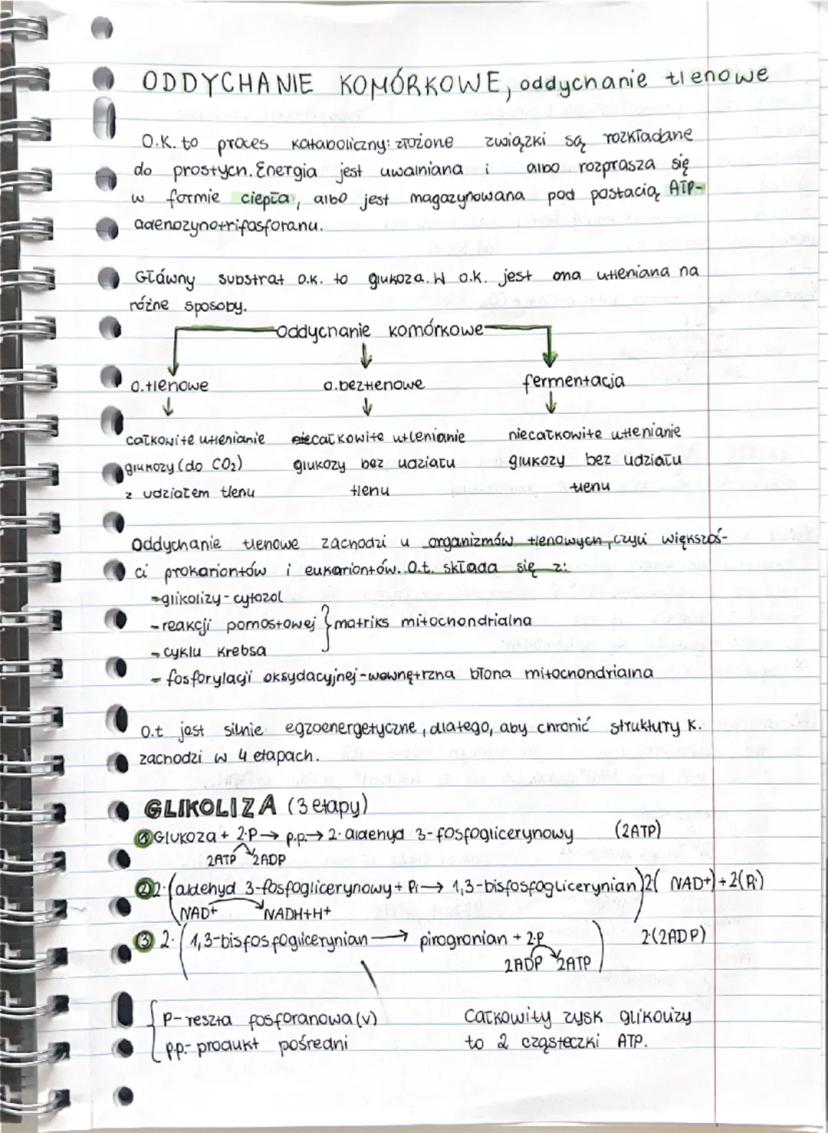 ODDYCHANIE KOMÓRKOWE, oddychanie tlenowe
O.K. to proces kataboliczny: złożone związki są rozkładane
do prostych. Energia jest uwalniana i albo rozprasza się
w formie ciepła, albo jest magazynowana pod postacią ATP-
adenozynotrifosforanu.
Główny substrat o.k. to glukoza. W o.k. jest ona utleniana na
różne sposoby.
Oddychanie komórkowe
o.tlenowe o.beztlenowe fermentacja
całkowite utlenianie niecałkowite utlenianie niecałkowite utlenianie
glukozy (do CO₂) glukozy bez udziału glukozy bez udziału
z udziałem tlenu tlenu tlenu
Oddychanie tlenowe zachodzi u organizmów tlenowych, czyli większoś-
ci prokariontów i eukariontów. O.t. składa się z:
-glikolizy-cytozol
-reakcji pomostowej } matriks mitochondrialna
-cyklu Krebsa
-fosforylacji oksydacyjnej-wewnętrzna błona mitochondrialna
O.t jest silnie egzoenergetyczne, dlatego, aby chronić struktury k.
zachodzi w 4 etapach.
GLIKOLIZA (3 etapy)
① Glukoza + 2·P → p.p. → 2·aldehyd 3-fosfoglicerynowy (2ATP)
2ATP 2ADP
② 2·(aldehyd 3-fosfoglicerynowy + Pi → 1,3-bisfosfoglicerynian) 2(NAD+) + 2(Pi)
NAD+ NADH+H+
③ 2·(1,3-bisfosfoglicerynian → pirogronian + 2·P) 2·(2ADP)
2ADP 2ATP
P-reszta fosforanowa (V) Całkowity zysk glikolizy
p.p.- produkt pośredni to 2 cząsteczki ATP.